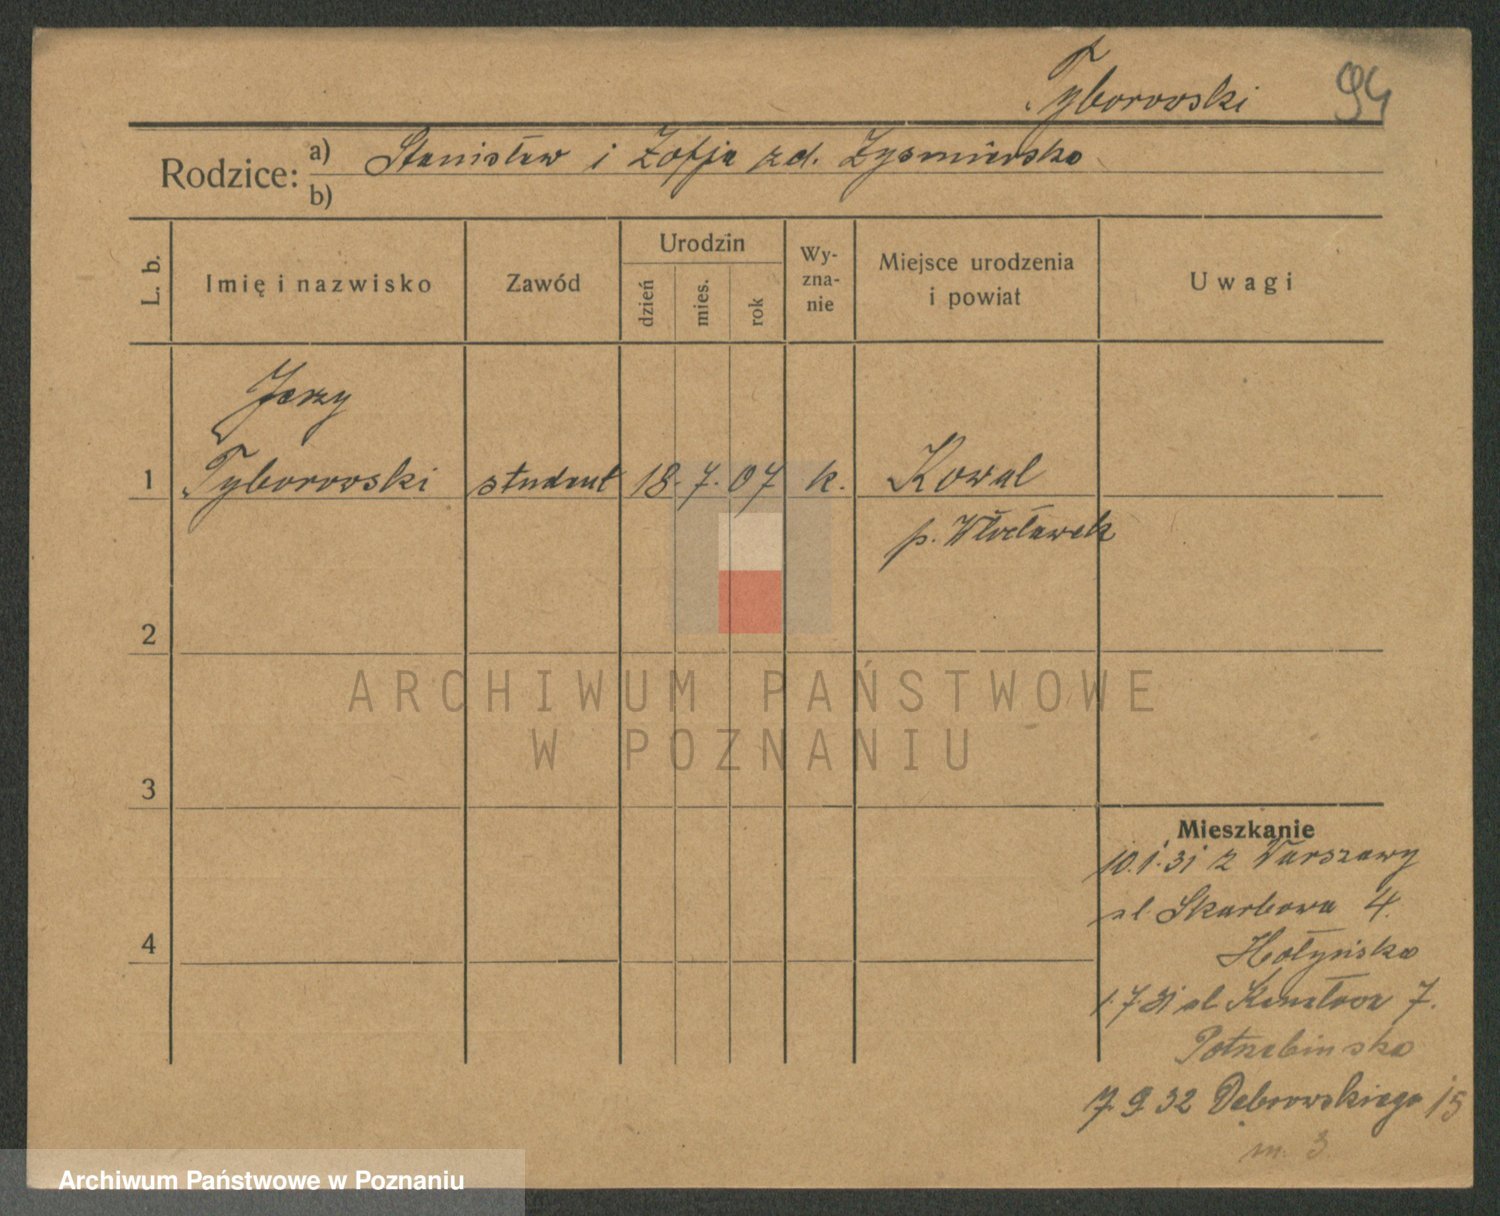 Tyborowski 94
Rodzice: a) Stanisław i Zofja zd.
b)
L. b. Imię i nazwisko Zawód Urodzin dzień mies. rok Wy-zna-nie Miejsce urodzenia i powiat Uwagi
Jerzy
1 Tyborowski student 18. 7. 07 k. Kowal
p. Włocławek
2
ARCHIWUM PAŃSTWOWE
W POZNANIU
3
Mieszkanie
10.1.31 z Warszawy
ul. Skarbowa 4.
Hołyńska
4
1.7.31 ul. 7.
7.9.32 Dąbrowskiego 15
m. 3
Archiwum Państwowe w Poznaniu